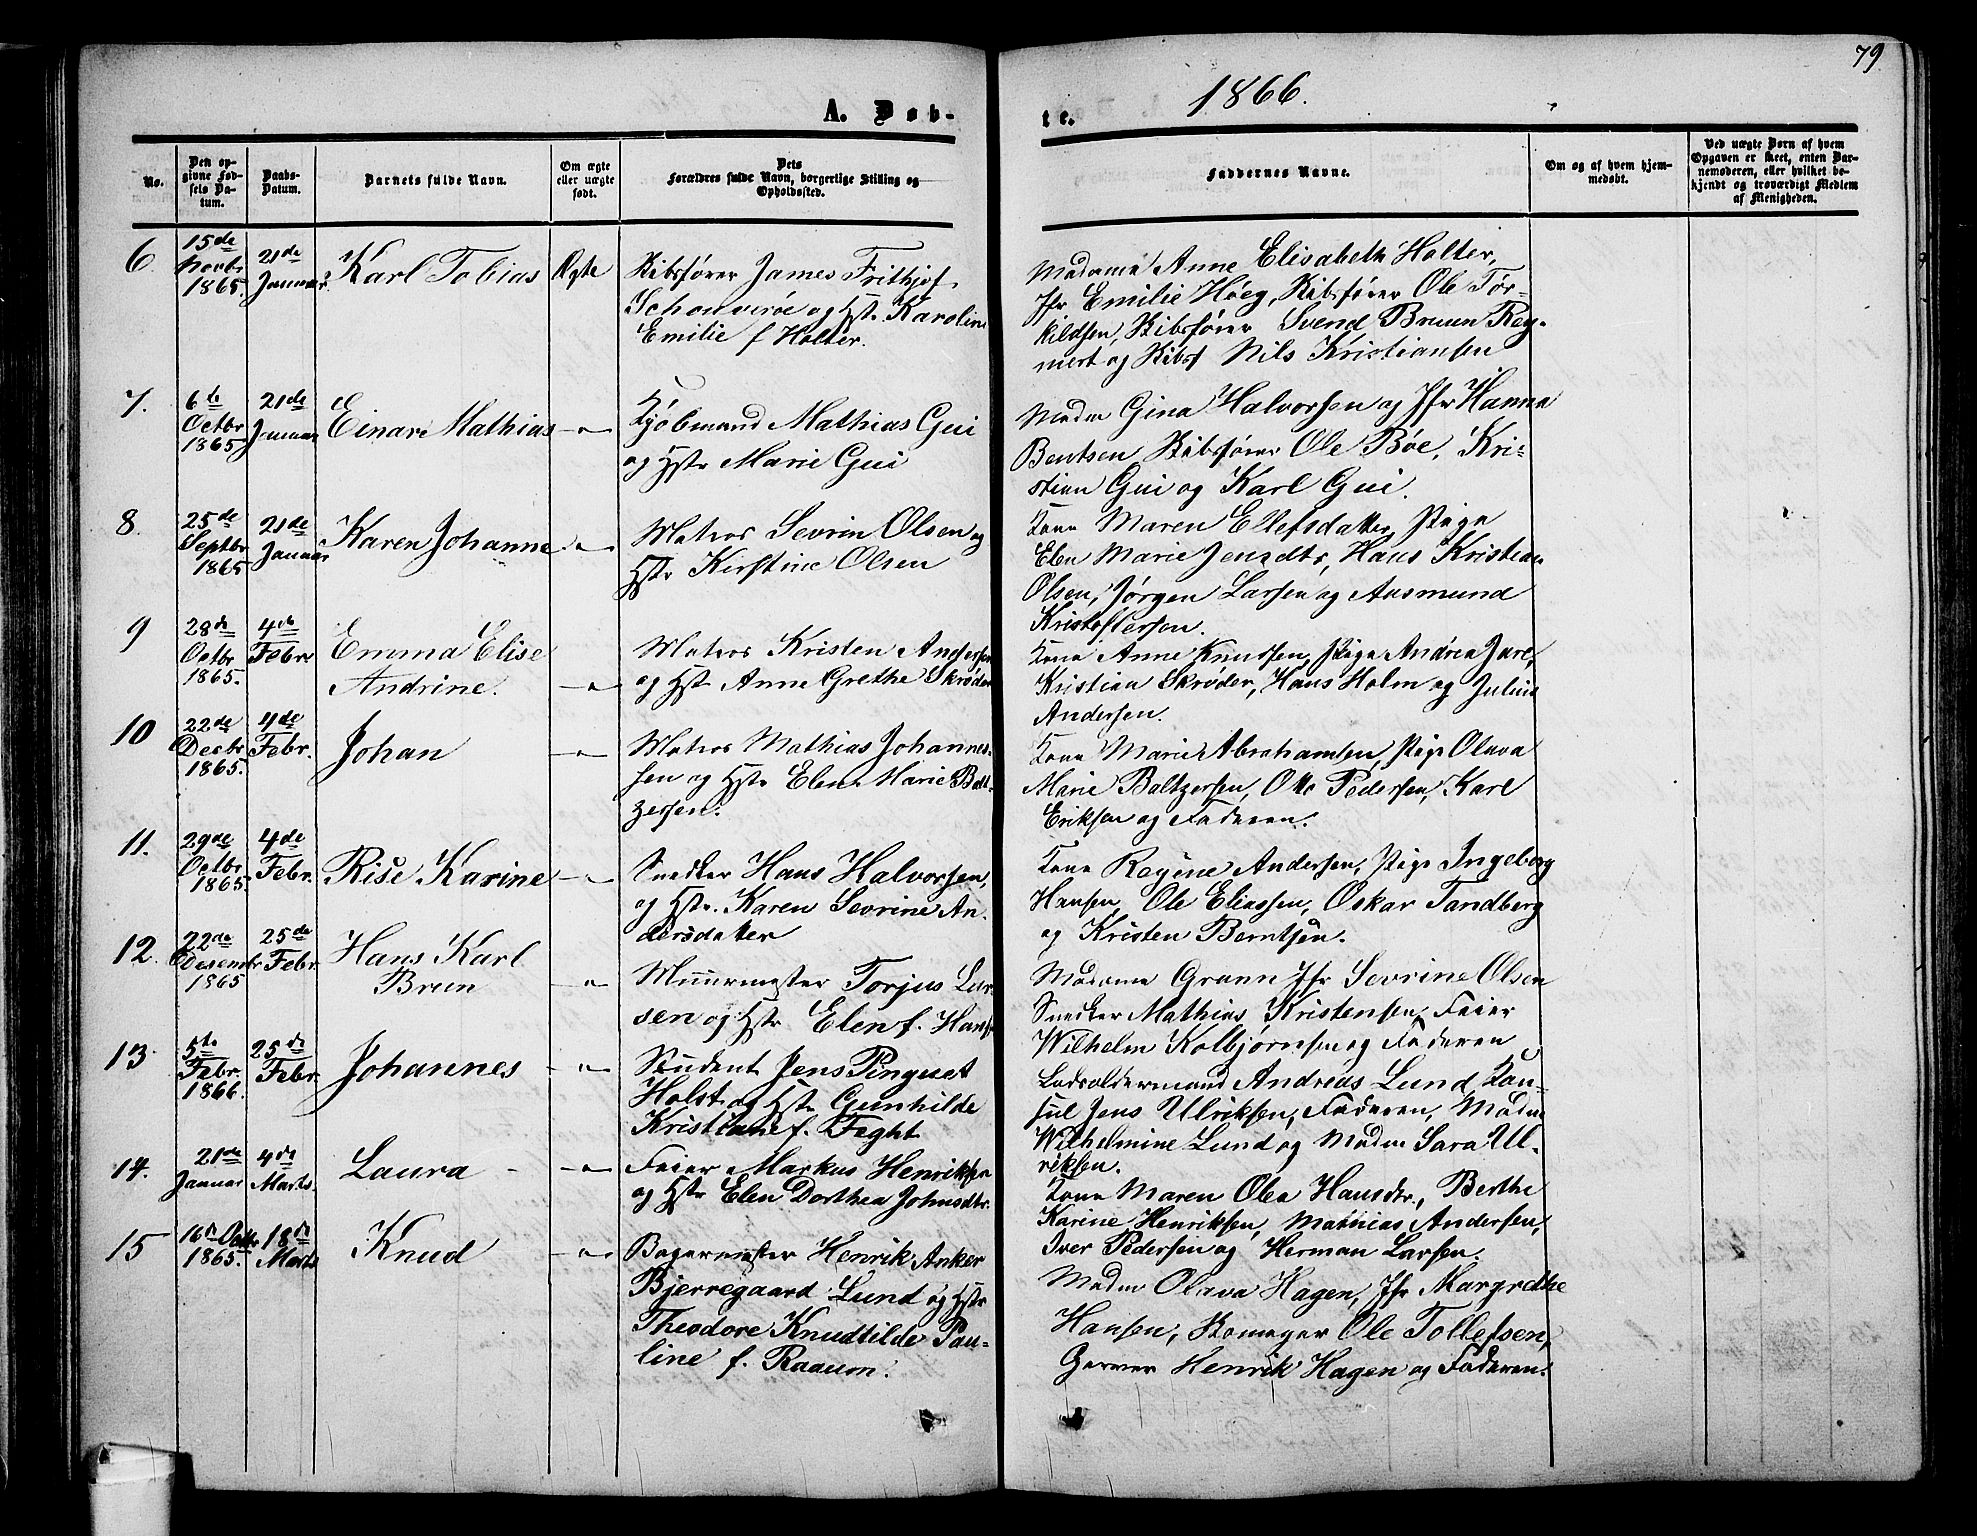 79
1866.
A. Døb-
te.
No.
Den op-
givne Fød-
sels Da-
tum.
Daabs-
Datum.
Barnets fulde Navn.
Om ægte
eller uægte
født.
Dets
Forældres fulde Navn, borgerlige Stilling og
Opholdssted.
Faddernes Navne.
Om og af hvem hjem-
medøbt.
Ved uægte Børn af hvem
Opgaven er skeet, enten Bar-
nemoderen, eller hvilket be-
kjendt og troværdigt Medlem
af Menigheden.
6
15de
Novbr
1865.
21de
Januar
Karl Tobias
Ægte
Skibsfører James Frithjof
og Hstr Karoline
Emilie f Holter.
Madame Anne Elisabeth Holter,
Jfr Emilie Höeg, Skibsfører Ole Tør-
kildsen, Skibsfører Svend Bruun Reg-
mert og Skibsf Nils Kristiansen
7.
6te
Octbr
1865
21de
Januar
Einar Mathias
-"-
Kjøbmand Mathias Gui
og Hstr Marie Gui
Madm Gina Halvorsen og Jfr Hanna
Bentsen Skibsfører Ole Böe, Kri-
stian Gui og Karl Gui.
8.
25de
Septbr
1865
21de
Januar
Karen Johanne
-"-
Matros Sevrin Olsen og
Hstr Kirstine Olsen
Kone Maren Ellefsdatter, Pige
Elen Marie Jensdtr, Hans Kristian
Olsen, Jørgen Larsen og Aasmund
Kristoffersen.
9
28de
Octbr
1865.
4de
Febr
Emma Elise
Andrine.
-"-
Matros Kristen Andersen
og Hstr Anne Grethe Skrøder
Kone Anne Knudsen, Pige Andrea Jarl,
Kristian Skrøder, Hans Holm og Julius
Andersen.
10
22de
Decbr
1865.
4de
Febr.
Johan
-"-
Matros Mathias Johannes-
sen og Hstr Elen Marie Balt-
zersen.
Kone Marie Abrahamsen, Pige Olava
Marie Baltzersen, Otto Pedersen, Karl
Eriksen og Faderen.
11.
29de
Octbr
1865.
4de
Febr.
Rise Karine
-"-
Snedker Hans Halvorsen,
og Hstr. Karen Sevrine An-
dersdatter
Kone Regine Andersen, Pige Ingeborg
Hansen, Ole Eliassen, Oskar Tandberg
og Kristen Berntsen.
12.
22de
Desembr
1865
25de
Febr.
Hans Karl
Brun
-"-
Muurmester Torjus Lar-
sen og Hstr Elen f. Hans
Madame Grann Jfr Sevrine Olsen
Snedker Mathias Kristensen, Feier
Wilhelm Kolbjørnsen og Faderen
13.
5te
Febr.
1866.
25de
Febr.
Johannes
-"-
Student Jens Pinguet
Holst og Hstr Gunhilde
Kristiane f. Feght
Lodsoldermand Andreas Lund, Kon-
sul Jens Ulriksen, Faderen, Madm
Wilhelmine Lund og Madm Sara Ul-
riksen.
14.
21de
Januar
4de
Marts.
Laura
-"-
Feier Markus Henriksen
og Hstr Elen Dorthea Johnsdtr.
Kone Maren Olea Hansdtr., Berthe
Karine Henriksen, Mathias Andersen,
Iver Pedersen og Herman Larsen.
15
16de Octbr
1865.
18de
Marts
Knud
-"-
Bagermester Henrik Anker
Bjerregaard Lund og Hstr
Theodore Knudtilde Pau-
line f. Raaum.
Madm Olava Hagen, Jfr Margrethe
Hansen, Skomager Ole Tollefsen,
Garver Henrik Hagen og Faderen.